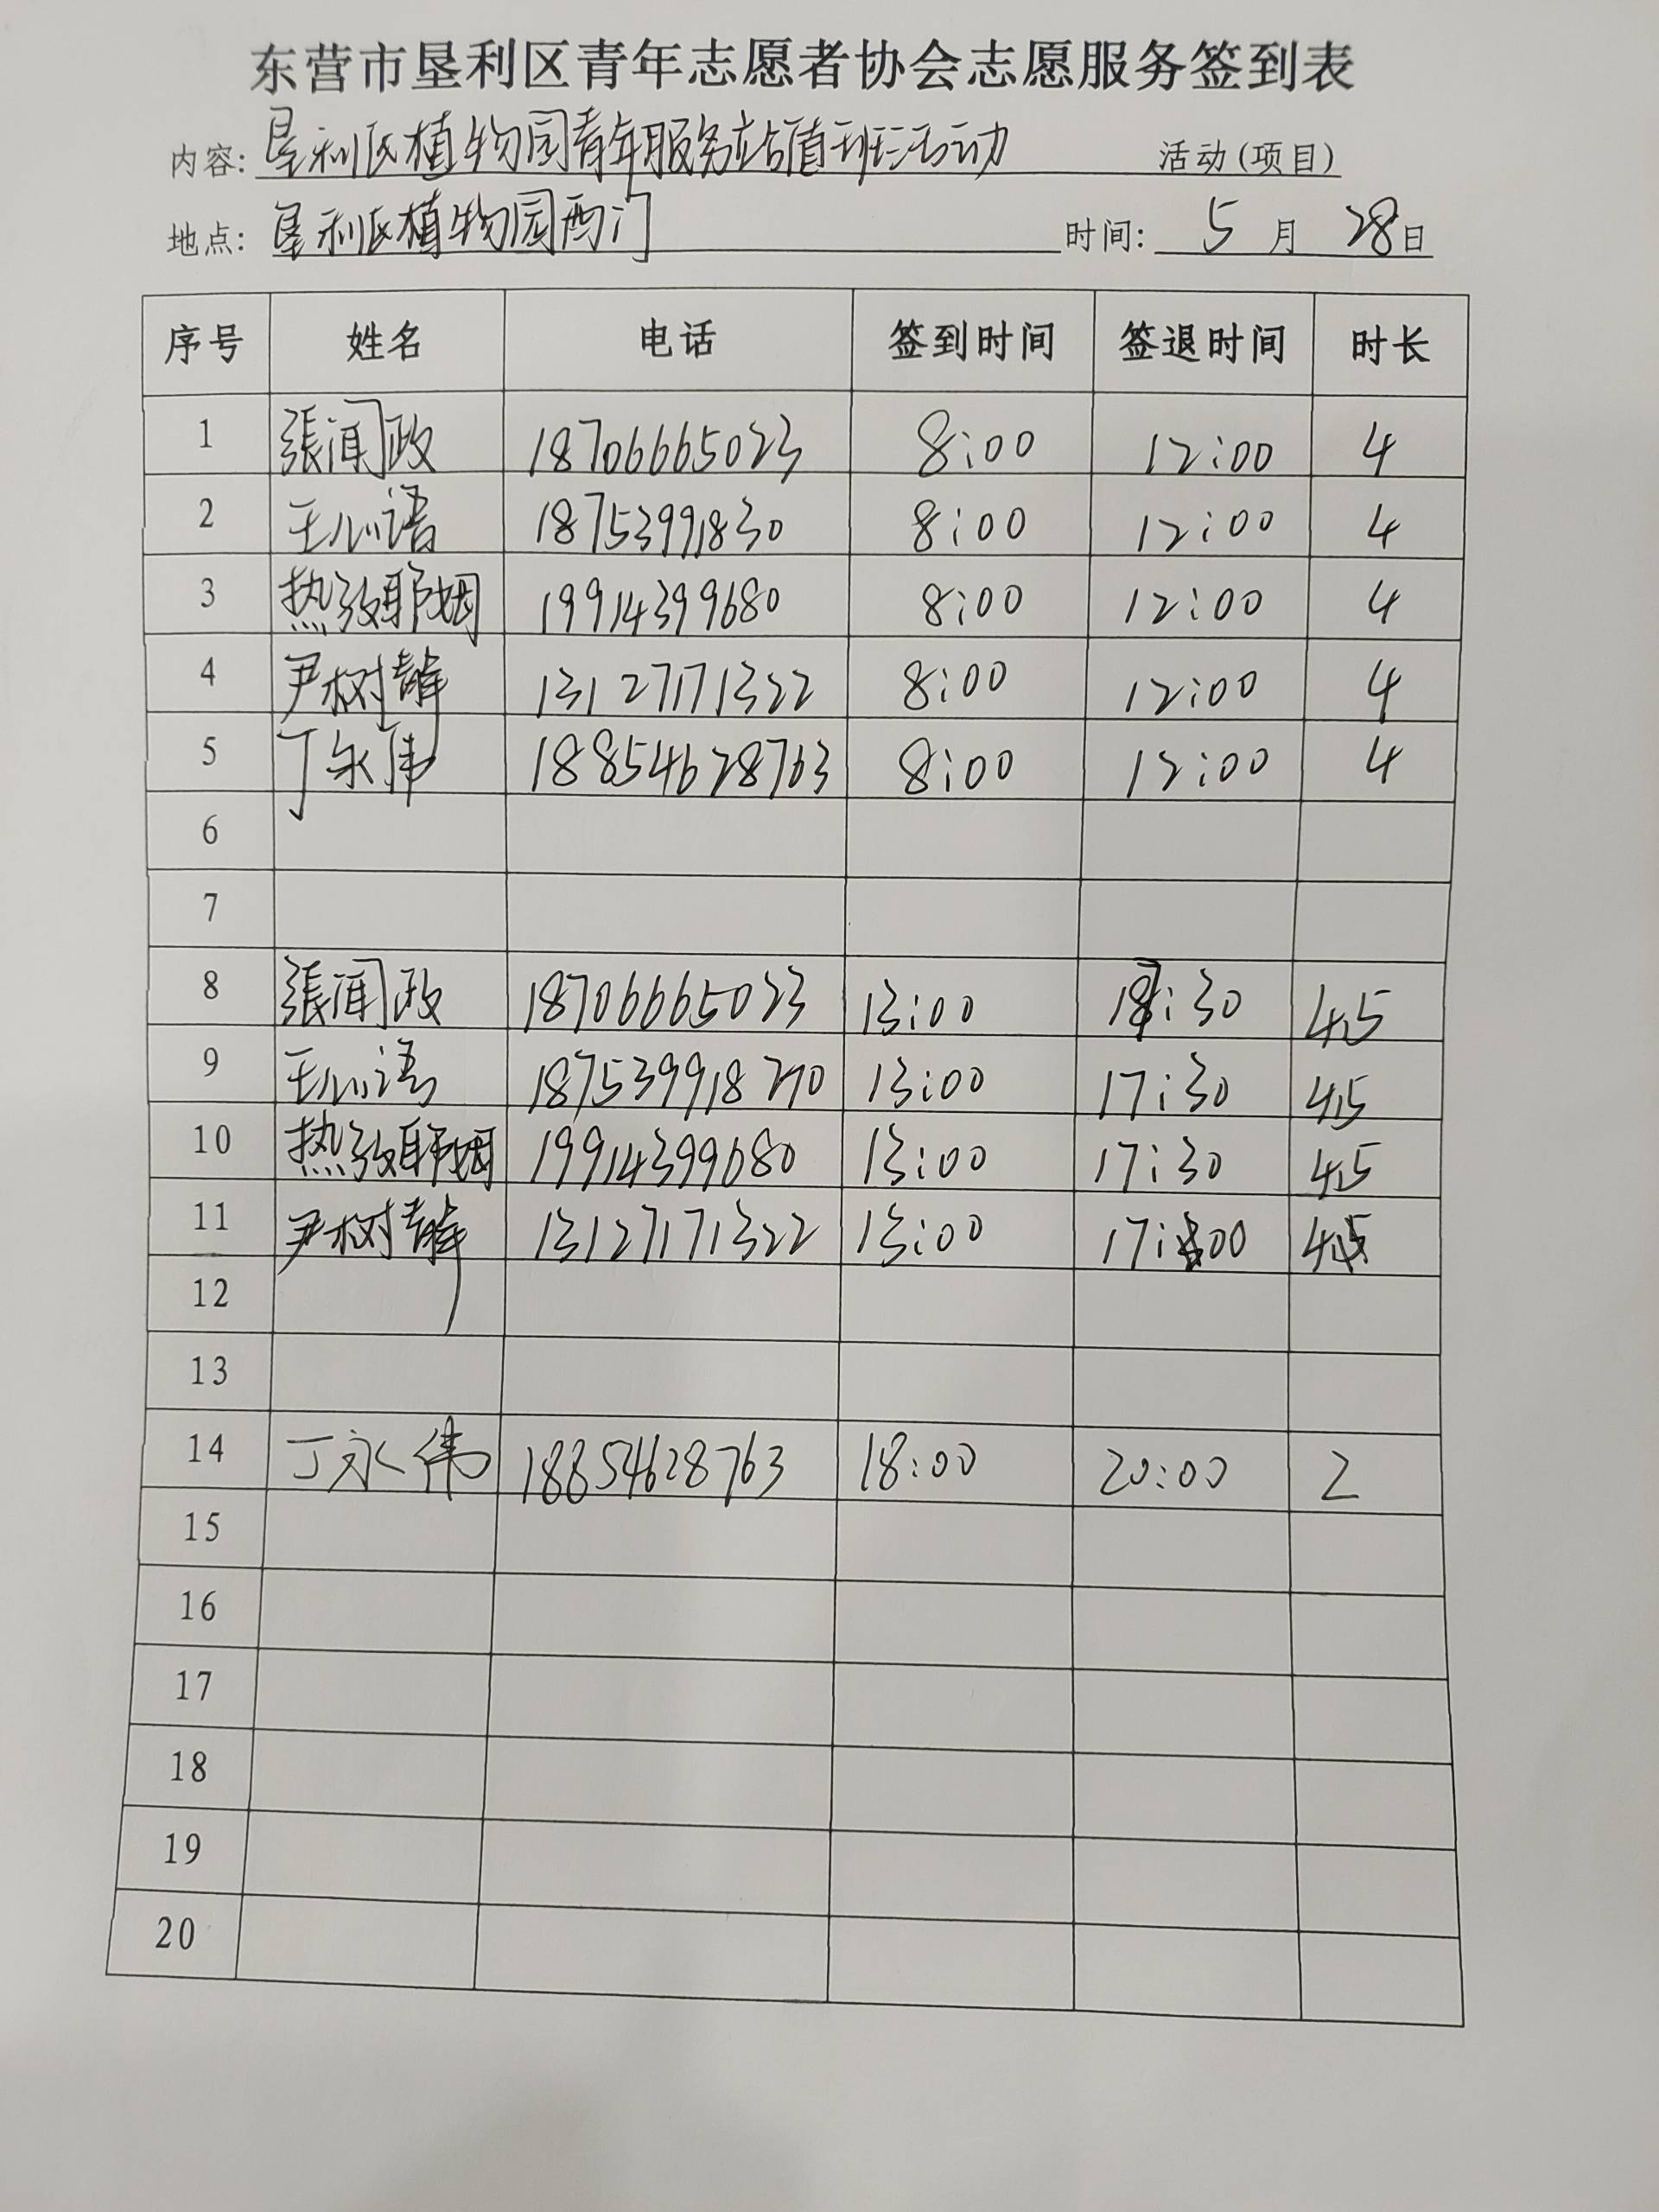 东营市垦利区青年志愿者协会志愿服务签到表
内容: 垦利区植物园青年服务站值班活动 活动(项目)
地点: 垦利区植物园西门 时间: 5 月 28 日
序号 姓名 电话 签到时间 签退时间 时长
1 張闻政 18706665023 8:00 12:00 4
2 王心语 18753991830 8:00 12:00 4
3 热孜耶姆 19914399680 8:00 12:00 4
4 尹树 13127171322 8:00 12:00 4
5 丁永伟 18854628763 8:00 12:00 4
6
7
8 張闻政 18706665023 13:00 :30 4.5
9 王心语 187539918 13:00 17:30 4.5
10 热孜耶姆 19914399680 13:00 17:30 4.5
11 尹树 13127171322 13:00 17:00 4
12
13
14 丁永伟 18854628763 18:00 20:00 2
15
16
17
18
19
20